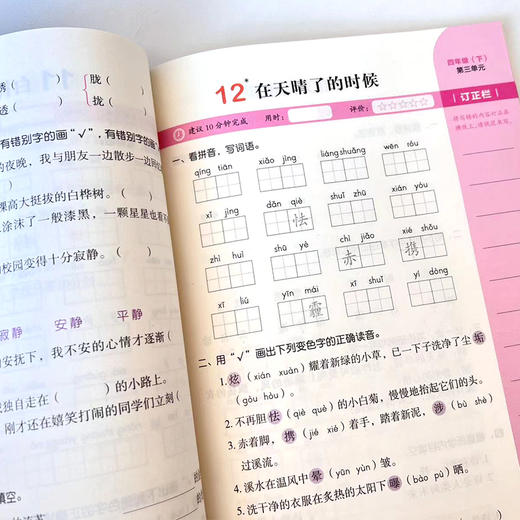 透（ ）
胧（ ）
拢（ ）
有错别字的画“√”，有错别字的画
的夜晚，我与朋友一边散步一边
棵高大挺拔的白桦树。（ ）
上涂抹了一般漆黑，一颗星星也看不
校园变得十分寂静。（ ）
寂静 安静 平静
的安抚下，我不安的心情才逐渐（
独自走在（ ）的小路上。
刚才还在嬉笑打闹的同学们立刻（
填空。
四年级（下）
第三单元
12* 在天晴了的时候
建议10分钟完成 用时： 评价：☆☆☆☆☆
订正栏
一、看拼音，写词语。
qíng tiān xiǎo jìng liáng shuǎng wēn róu
xī jìng dǎn qiè shuǐ zhǐ xián yóu
怯
zhì huì shū yè chì jiǎo xié shǒu
赤 携
xī liú yīn mái yí dòng
霾
二、用“√”画出下列变色字的正确读音。
1.炫（xián xuàn）耀着新绿的小草，已一下子洗净了尘垢
（gòu hòu）。
2.不再胆怯（qiè què）的小白菊，慢慢地抬起它们的头。
3.赤着脚，携（jié xié）着手，踏着新泥，涉（bù shè）
过溪流。
4.溪水在温风中晕（yūn yùn）皱。
5.洗干净的衣服在炙热的太阳下曝（bào pù）晒。